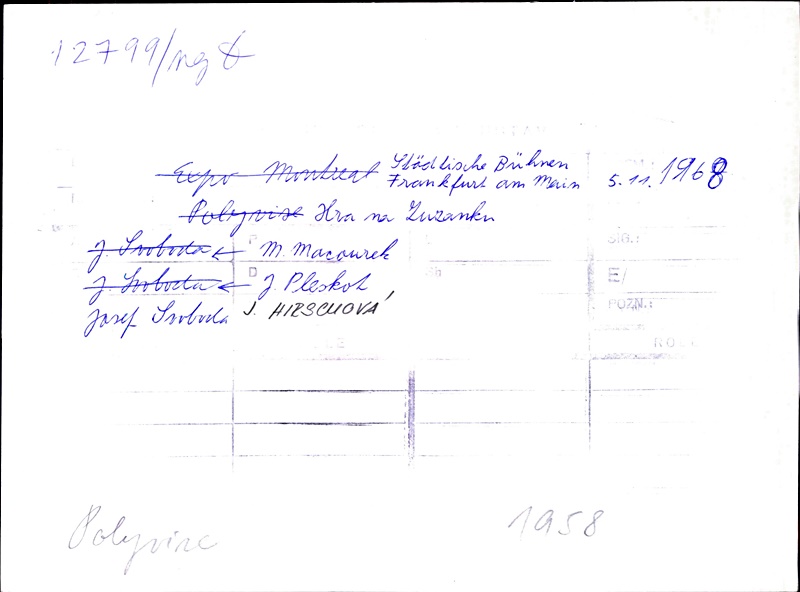 12799/neg
Expo Montreal Städtische Bühnen
Frankfurt am Main 5.11.1968
Polyvize Hra na Zuzanku
J. Svoboda ← M. Macourek
J. Svoboda ← J. Pleskot
Josef Svoboda J. HIRSCHOVÁ
SIG.:
D
E/
POZN.:
Polyvize 1958